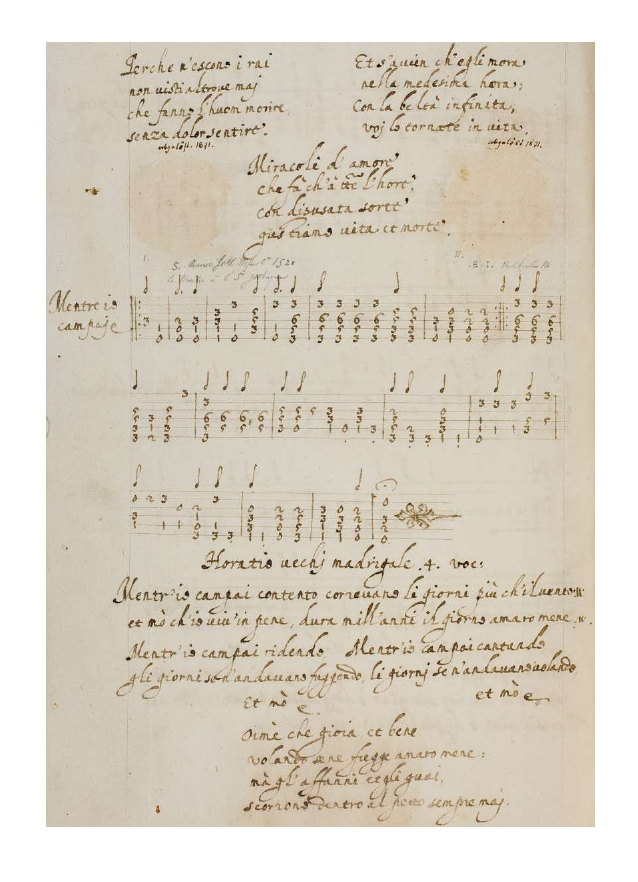 Perche n'escono i rai
non visti altrove maj
che fanno l'huom morire,
senza dolor sentire.
Et s'avien ch'egli mora
nella medesima hora;
Con la beltà infinita,
voj lo tornate in vita.
Miracoli d'amore
che fà ch'à tte l'hore
con disusata sorte
gustiamo vita et morte.
Mentre io
campaje
Horatio vechj madrigale .4. voc:
Mentr'io campai contento correvano li giorni più ch'il vento
et mò ch'io vivo in pene, dura mill'anni il giorno amaro mene
Mentr'io campai ridendo Mentr'io campai cantando
gli giorni se n'andavano fuggendo, li giornj se n'andavano volando
Et mò e
et mò e
Oimè che gioia et bene
volando se ne fugge amaro mene;
mà gl'affanni et gli guai,
scorrono dentro al petto sempre maj.